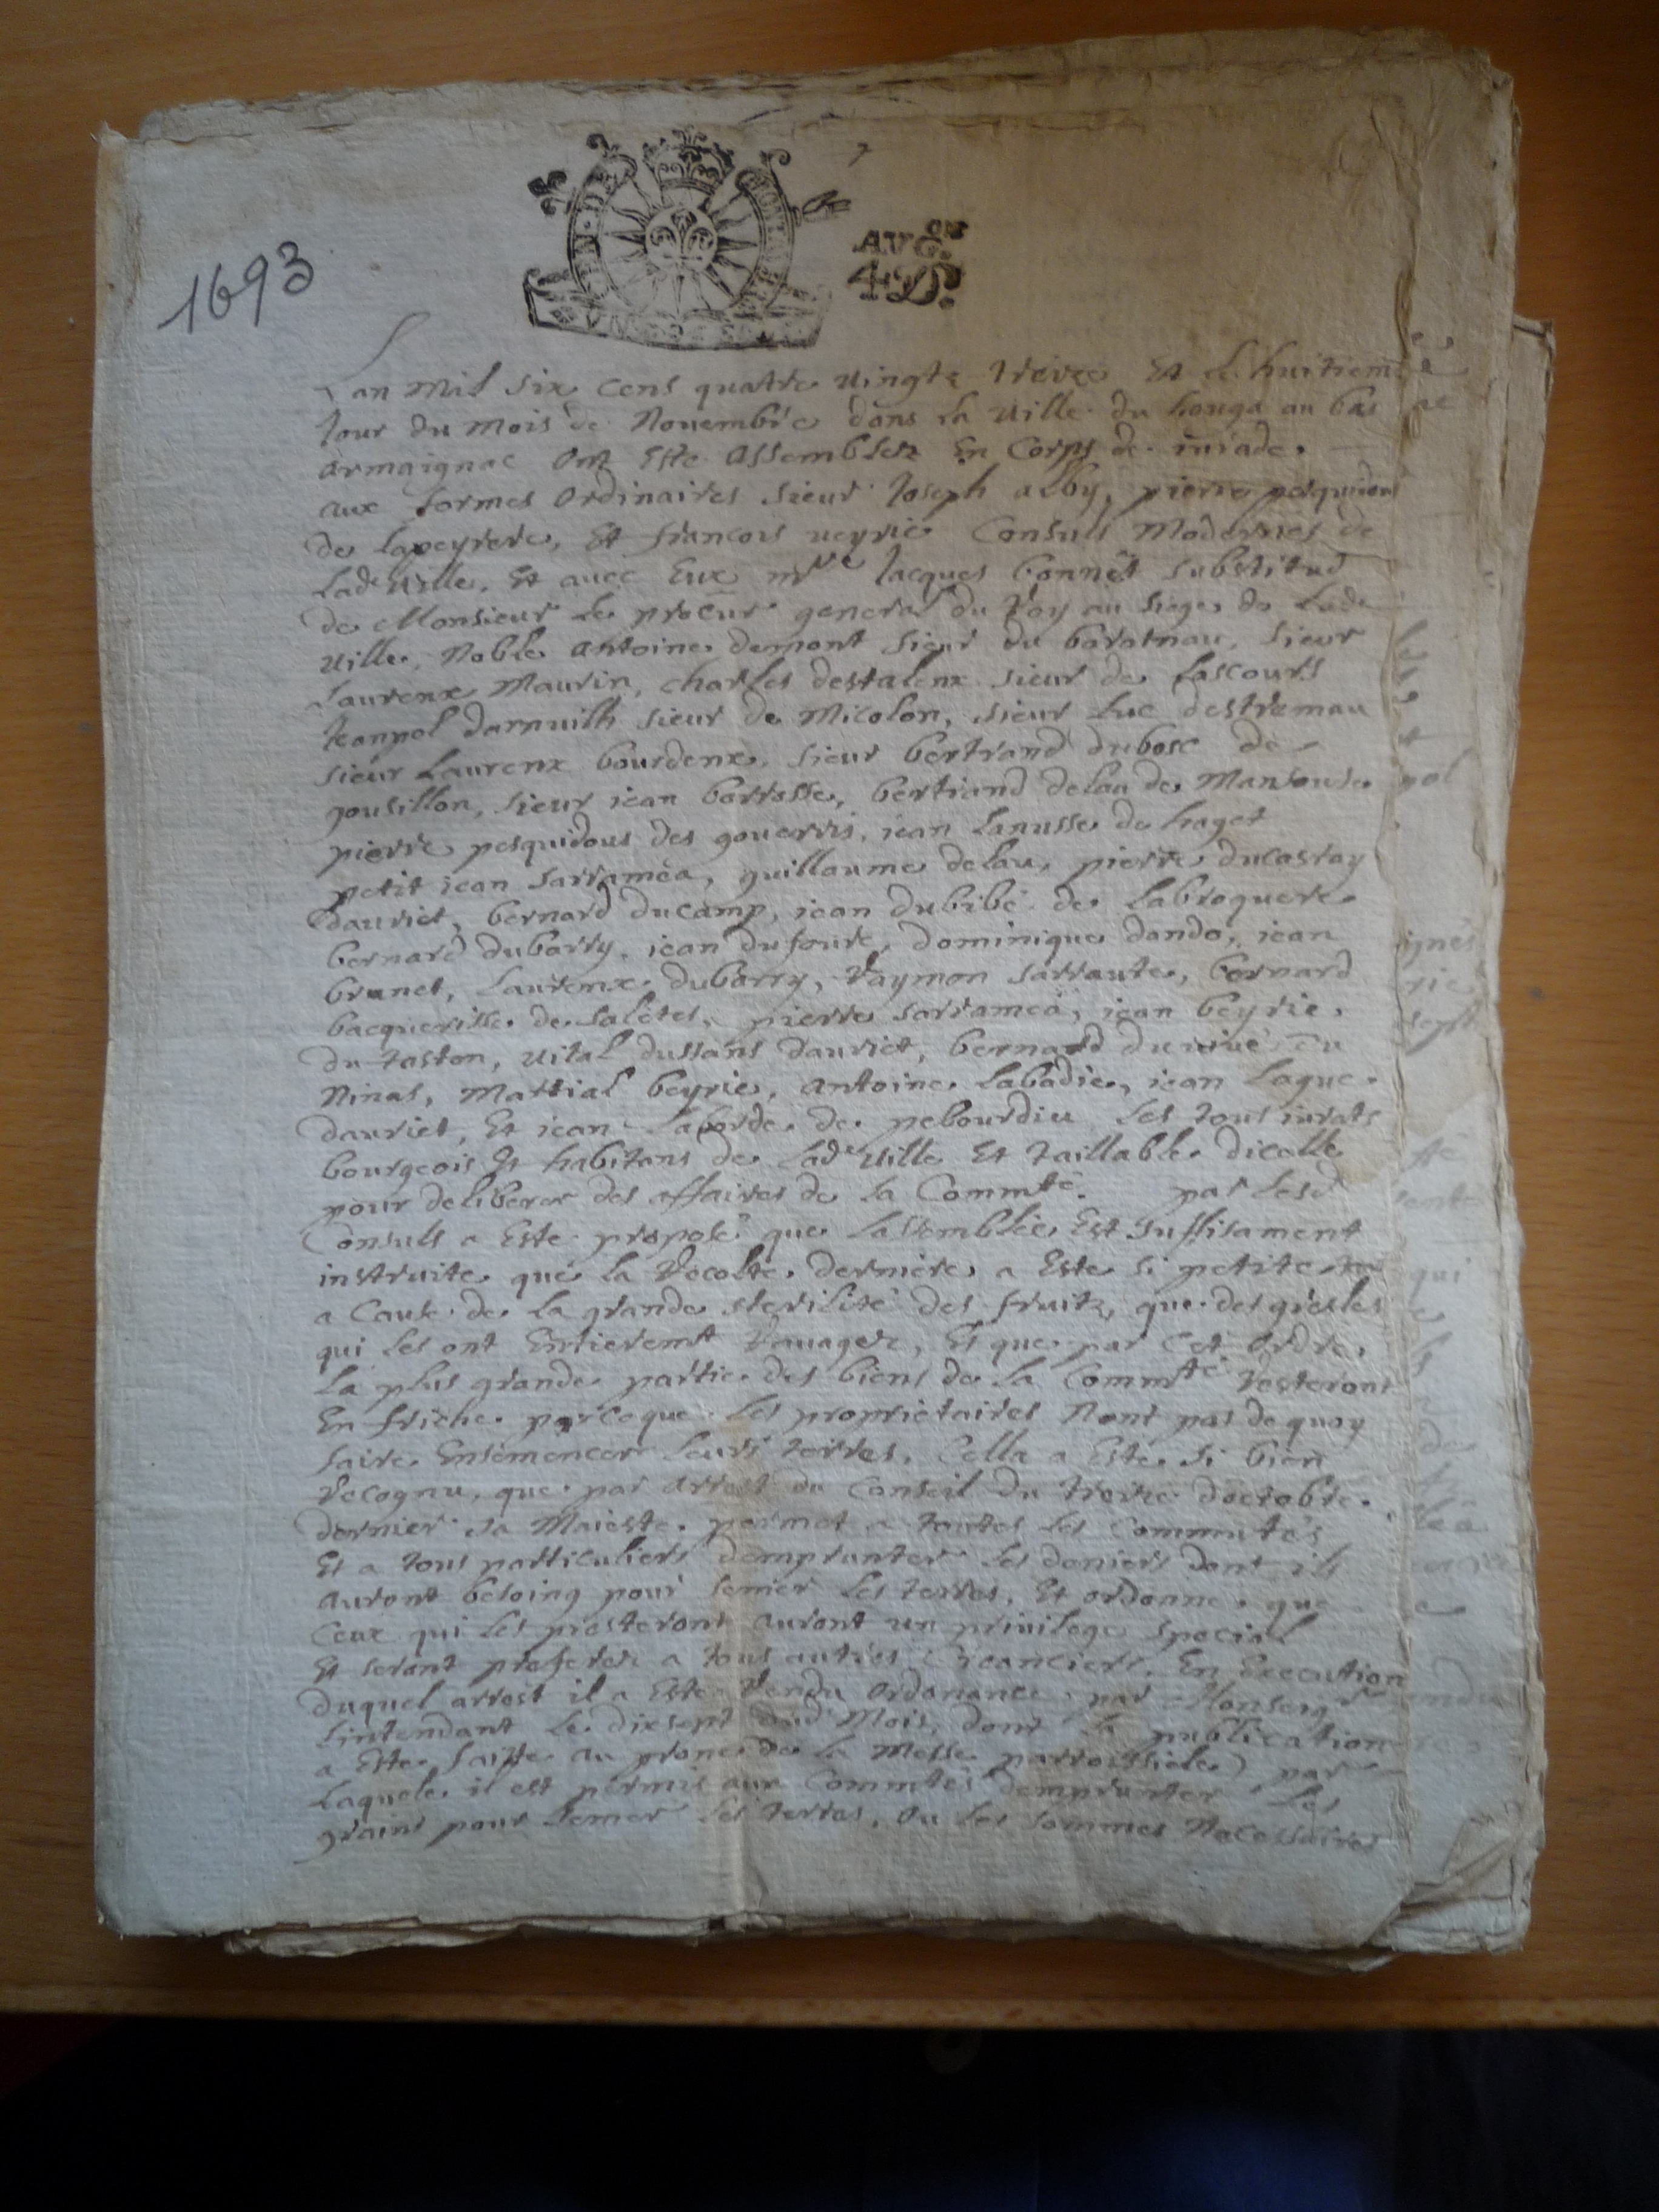 1693
AVG.on
4 D.
Lan Mil six cens quatre vingtz treize Et le huitieme
Jour du Mois de Novembre dans la ville du houga au bas
armaignac Ont Este Assemblez En Corps de iurade.
aux formes Ordinaires sieur Joseph alby, pierre pesquidous
de Lapeyrere, Et francois veyrie Consuls Modernes de
Lade ville, Et avec Eux mre Jacques bonnet substitud
de Monsieur Le procur general du Roy au siege de Lade
ville, Noble Antoine demont sieur du baratnau, sieur
Laurenx Maurin, charles destalenx sieur de Lascours
Jeanpol darnuilh sieur de Micolon, sieur Luc destremau
sieur Laurenx bourdenx, sieur bertrand dubosc de
pousillon, sieur iean barrosse, bertrand delau de Mansouse
pierre pesquidous des gouarris, iean Lanusse de haget
petit iean sarraméa, guillaume delau, pierre ducastay
dauriet, bernard ducamp, iean dubibé de Labroquere
bernard dubarry, iean dufourc, dominique dando, iean
brunet, Laurenx dubarry, Raymon sarraute, bernard
bacquerisse de saletes, pierre sarramea, iean beyrie,
du taston, vital dussans dauriet, bernard du
Ninas, Martial beyrie, Antoine Labadie, iean Lague
dauriet, Et iean Laborde de pebourdieu Les tous iurats
bourgeois Et habitans de Lade ville Et taillable dicelle
pour deliberer des affaires de la Commté. par Lesd
Consuls a Este proposé que Lassemblée Est suffisament
instruite que la Recolte derniere a Este si petite tan
a Cause de la grande sterilité des fruitz, que des gresles
qui les ont Entieremt Ravagez, Et que par Cet Ordre,
La plus grande partie des biens de la Commté Resteront
En friche parceque Les proprietaires Nont pas de quoy
faire Ensemencer leurs terres, Cella a Esté si bien
Recognu, que par arrest du Conseil du treize doctobre
dernier sa Maieste permet a toutes les Commutés
Et a tous particuliers demprunter les deniers dont ils
auront besoing pour semer les terres, Et ordonne que
Ceux qui les presteront auront un privilege special
Et seront preferez a tous autres Creanciers. En Execution
duquel arrest il a Este Rendu Ordonance par Monseigr
Lintendant le dixsept dud Mois, dont la publication
a Este faitte au prone de la Messe parroissiele) par
Laquele il est permis aux Commtés demprunter Les
grains pour semer les terres, ou les sommes Necessaires